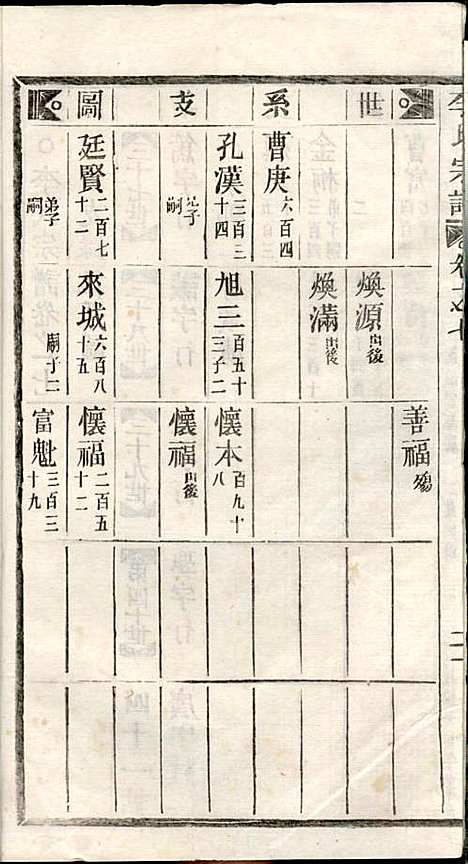 世系支圖
善福 殤
煥源 出後
煥滿 出後
曹庚 六百四
孔漢 三百三十四
旭三 百五十三 子二
懷本 百九十八
弟子嗣
懷福 出後
廷賢 二百七十二
來城 六百八十五
懷福 二百五十二
弟子嗣
嗣子二
富魁 三百三十九